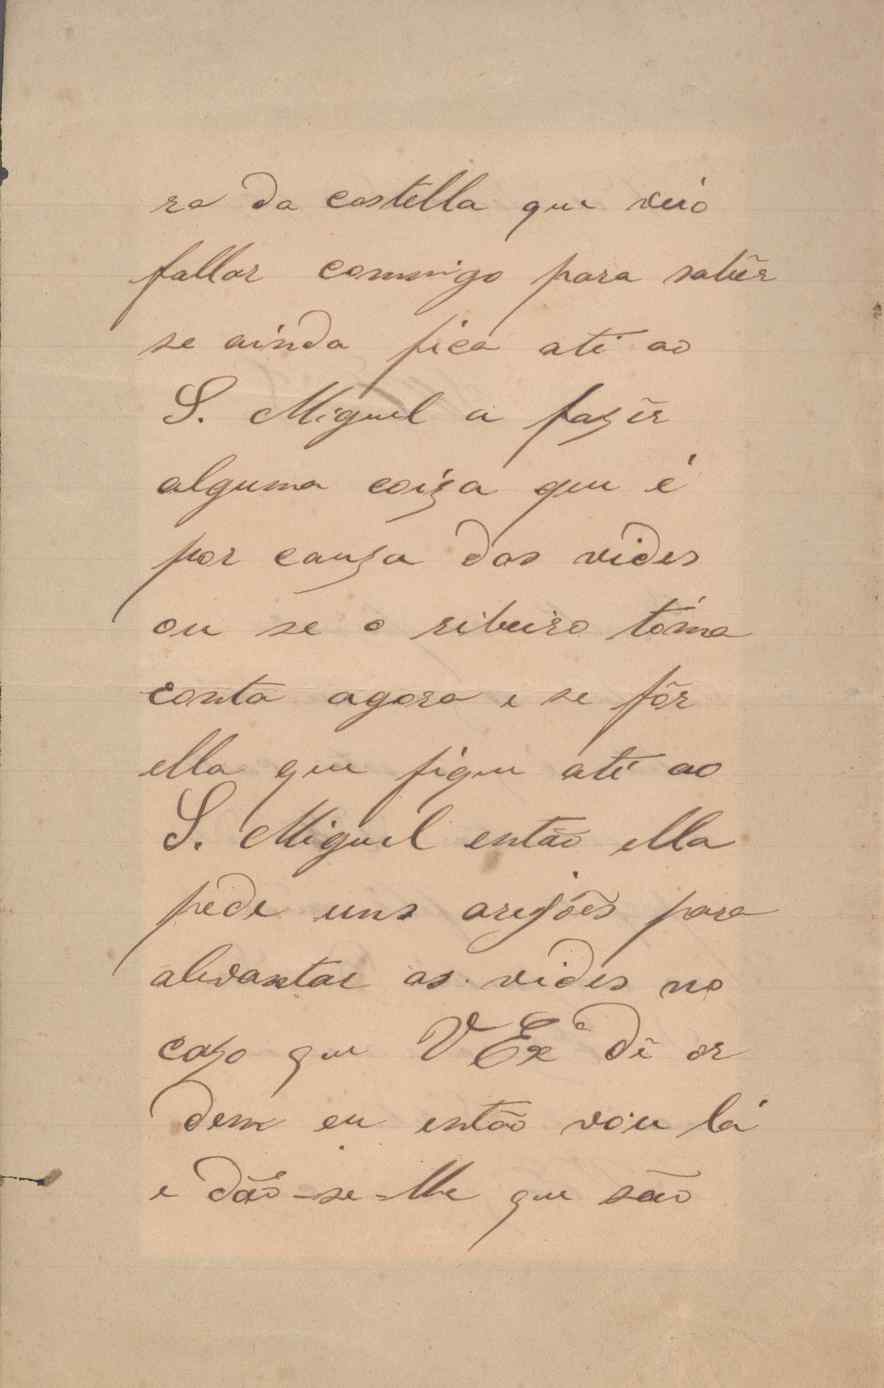 ra da costella que veio
fallar commigo para sabêr
se ainda fica até ao
S. Miguel a fazêr
alguma coiza que é
por cauza das vides
ou se o ribeiro tóma
conta agora e se fôr
ella que fique até ao
S. Miguel então ella
pede uns arejões para
alevantar as vides no
cazo que VExª dê or
dem eu então vou lá
e dão-se-lhe que são